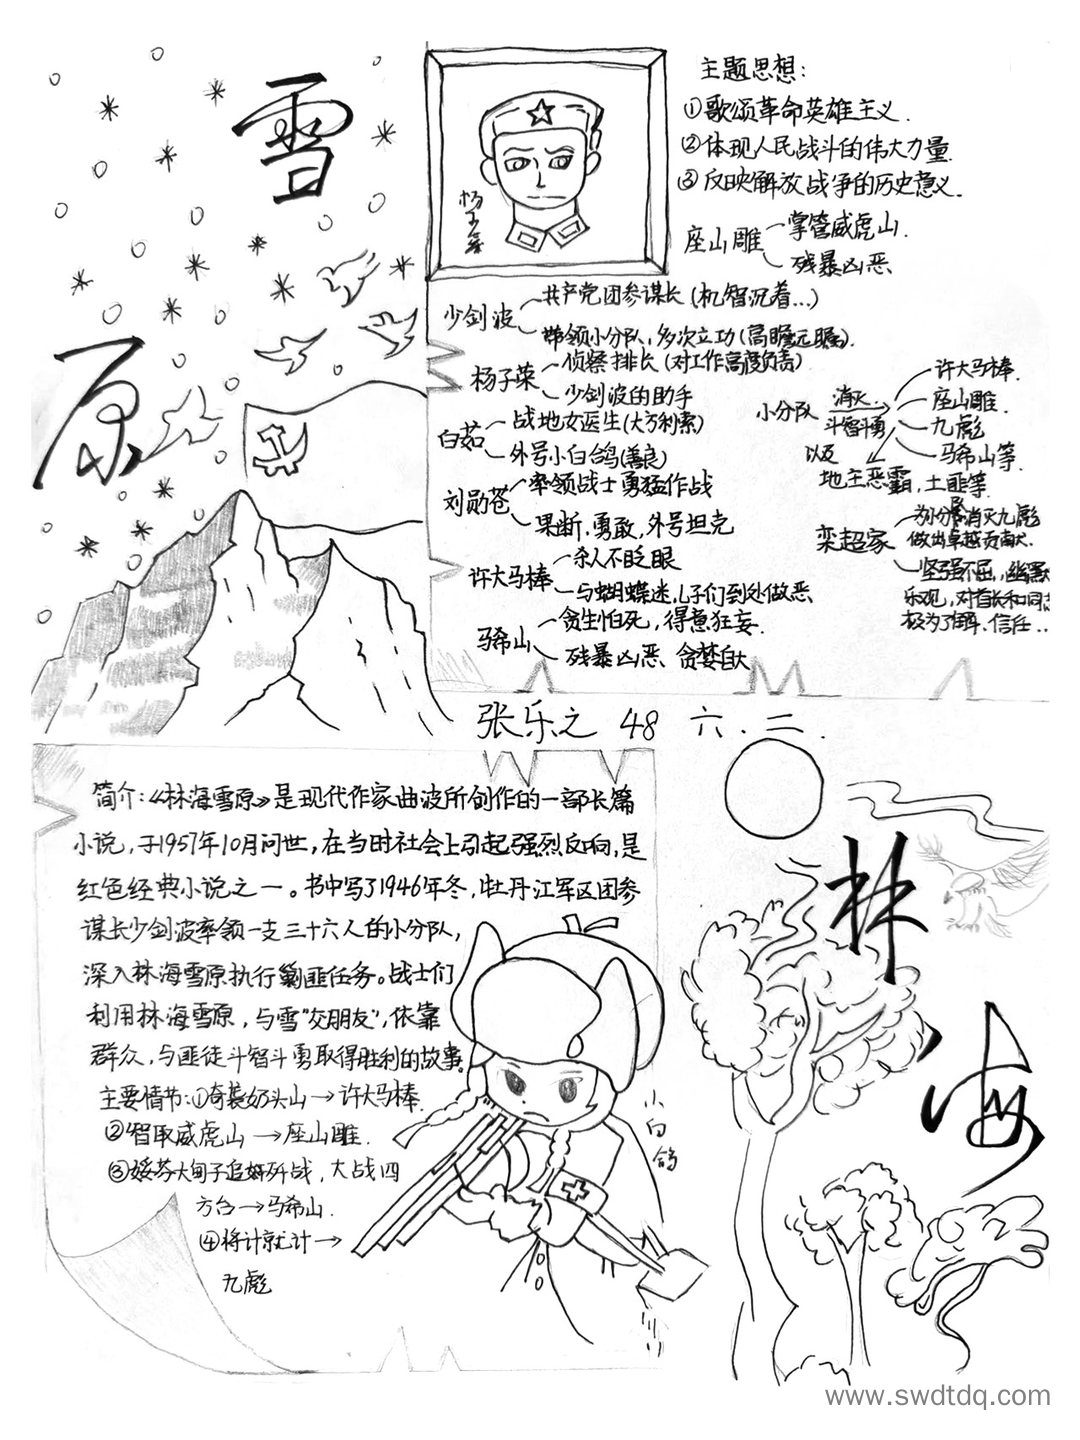 雪
原
杨子荣
主题思想：
①歌颂革命英雄主义.
②体现人民战斗的伟大力量.
③反映解放战争的历史意义.
座山雕
掌管威虎山.
残暴凶恶
少剑波
共产党团参谋长(机智沉着…)
带领小分队,多次立功(高瞻远瞩).
杨子荣
侦察排长(对工作高度负责)
少剑波的助手
白茹
战地女医生(大方利索)
外号小白鸽(善良)
刘勋苍
率领战士勇猛作战
果断,勇敢,外号坦克
许大马棒
杀人不眨眼
与蝴蝶迷,儿子们到处做恶
马希山
贪生怕死,得意狂妄.
残暴凶恶、贪婪自大
小分队
消灭
斗智斗勇
许大马棒.
座山雕.
九彪
马希山等.
以及
地主恶霸,土匪等.
栾超家
为小分队消灭九彪
做出卓越贡献.
坚强不屈,幽默
乐观,对首长和同志
极为了解、信任..
张乐之 48 六.二.
简介:《林海雪原》是现代作家曲波所创作的一部长篇
小说,于1957年10月问世,在当时社会上引起强烈反响,是
红色经典小说之一。书中写了1946年冬,牡丹江军区团参
谋长少剑波率领一支三十六人的小分队,
深入林海雪原执行剿匪任务。战士们
利用林海雪原,与雪“交朋友”,依靠
群众,与匪徒斗智斗勇取得胜利的故事。
主要情节:①奇袭奶头山→许大马棒.
②智取威虎山→座山雕.
③绥芬大甸子追奸歼战,大战四
方台→马希山.
④将计就计→
九彪
小白鸽
林
海
www.swdtdq.com